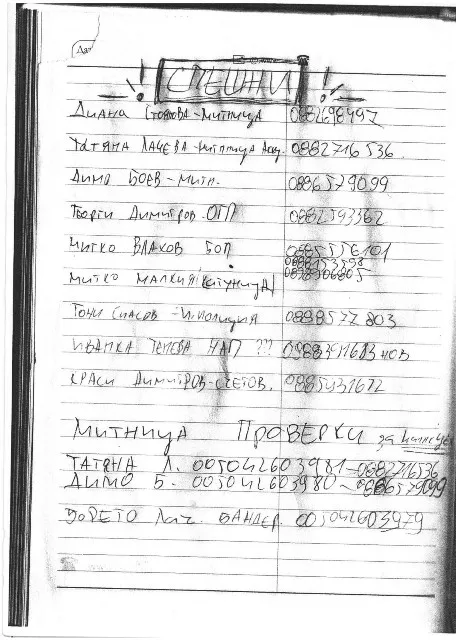 Дат
! СПЕШНИ !
ДИАНА СТОЯНОВА - МИТНИЦА 0882698497
ТАТЯНА ЛАЧЕВА - МИТНИЦА 0882716536
ДИМО БОЕВ - МИТН. 0886579099
ГЕОРГИ ДИМИТРОВ. ОГП 0882593362
МИТКО ВЛАХОВ БОП 0885556101
0888153598
МИТКО МАЛКИЯ (КАТУНИЦА)
ТОНИ СПАСОВ - ПОЛИЦИЯ 0888577803
ИВАНКА ТЕНЕВА НАП ??
КРАСИ ДИМИТРОВ - СЧЕТОВ. 0885431672
МИТНИЦА ПРОВЕРКИ за
ТАТЯНА Л. 005042603981 - 0882716536
ДИМО Б. 005042603980 - 0886579099
БАНДЕР. 005042603979